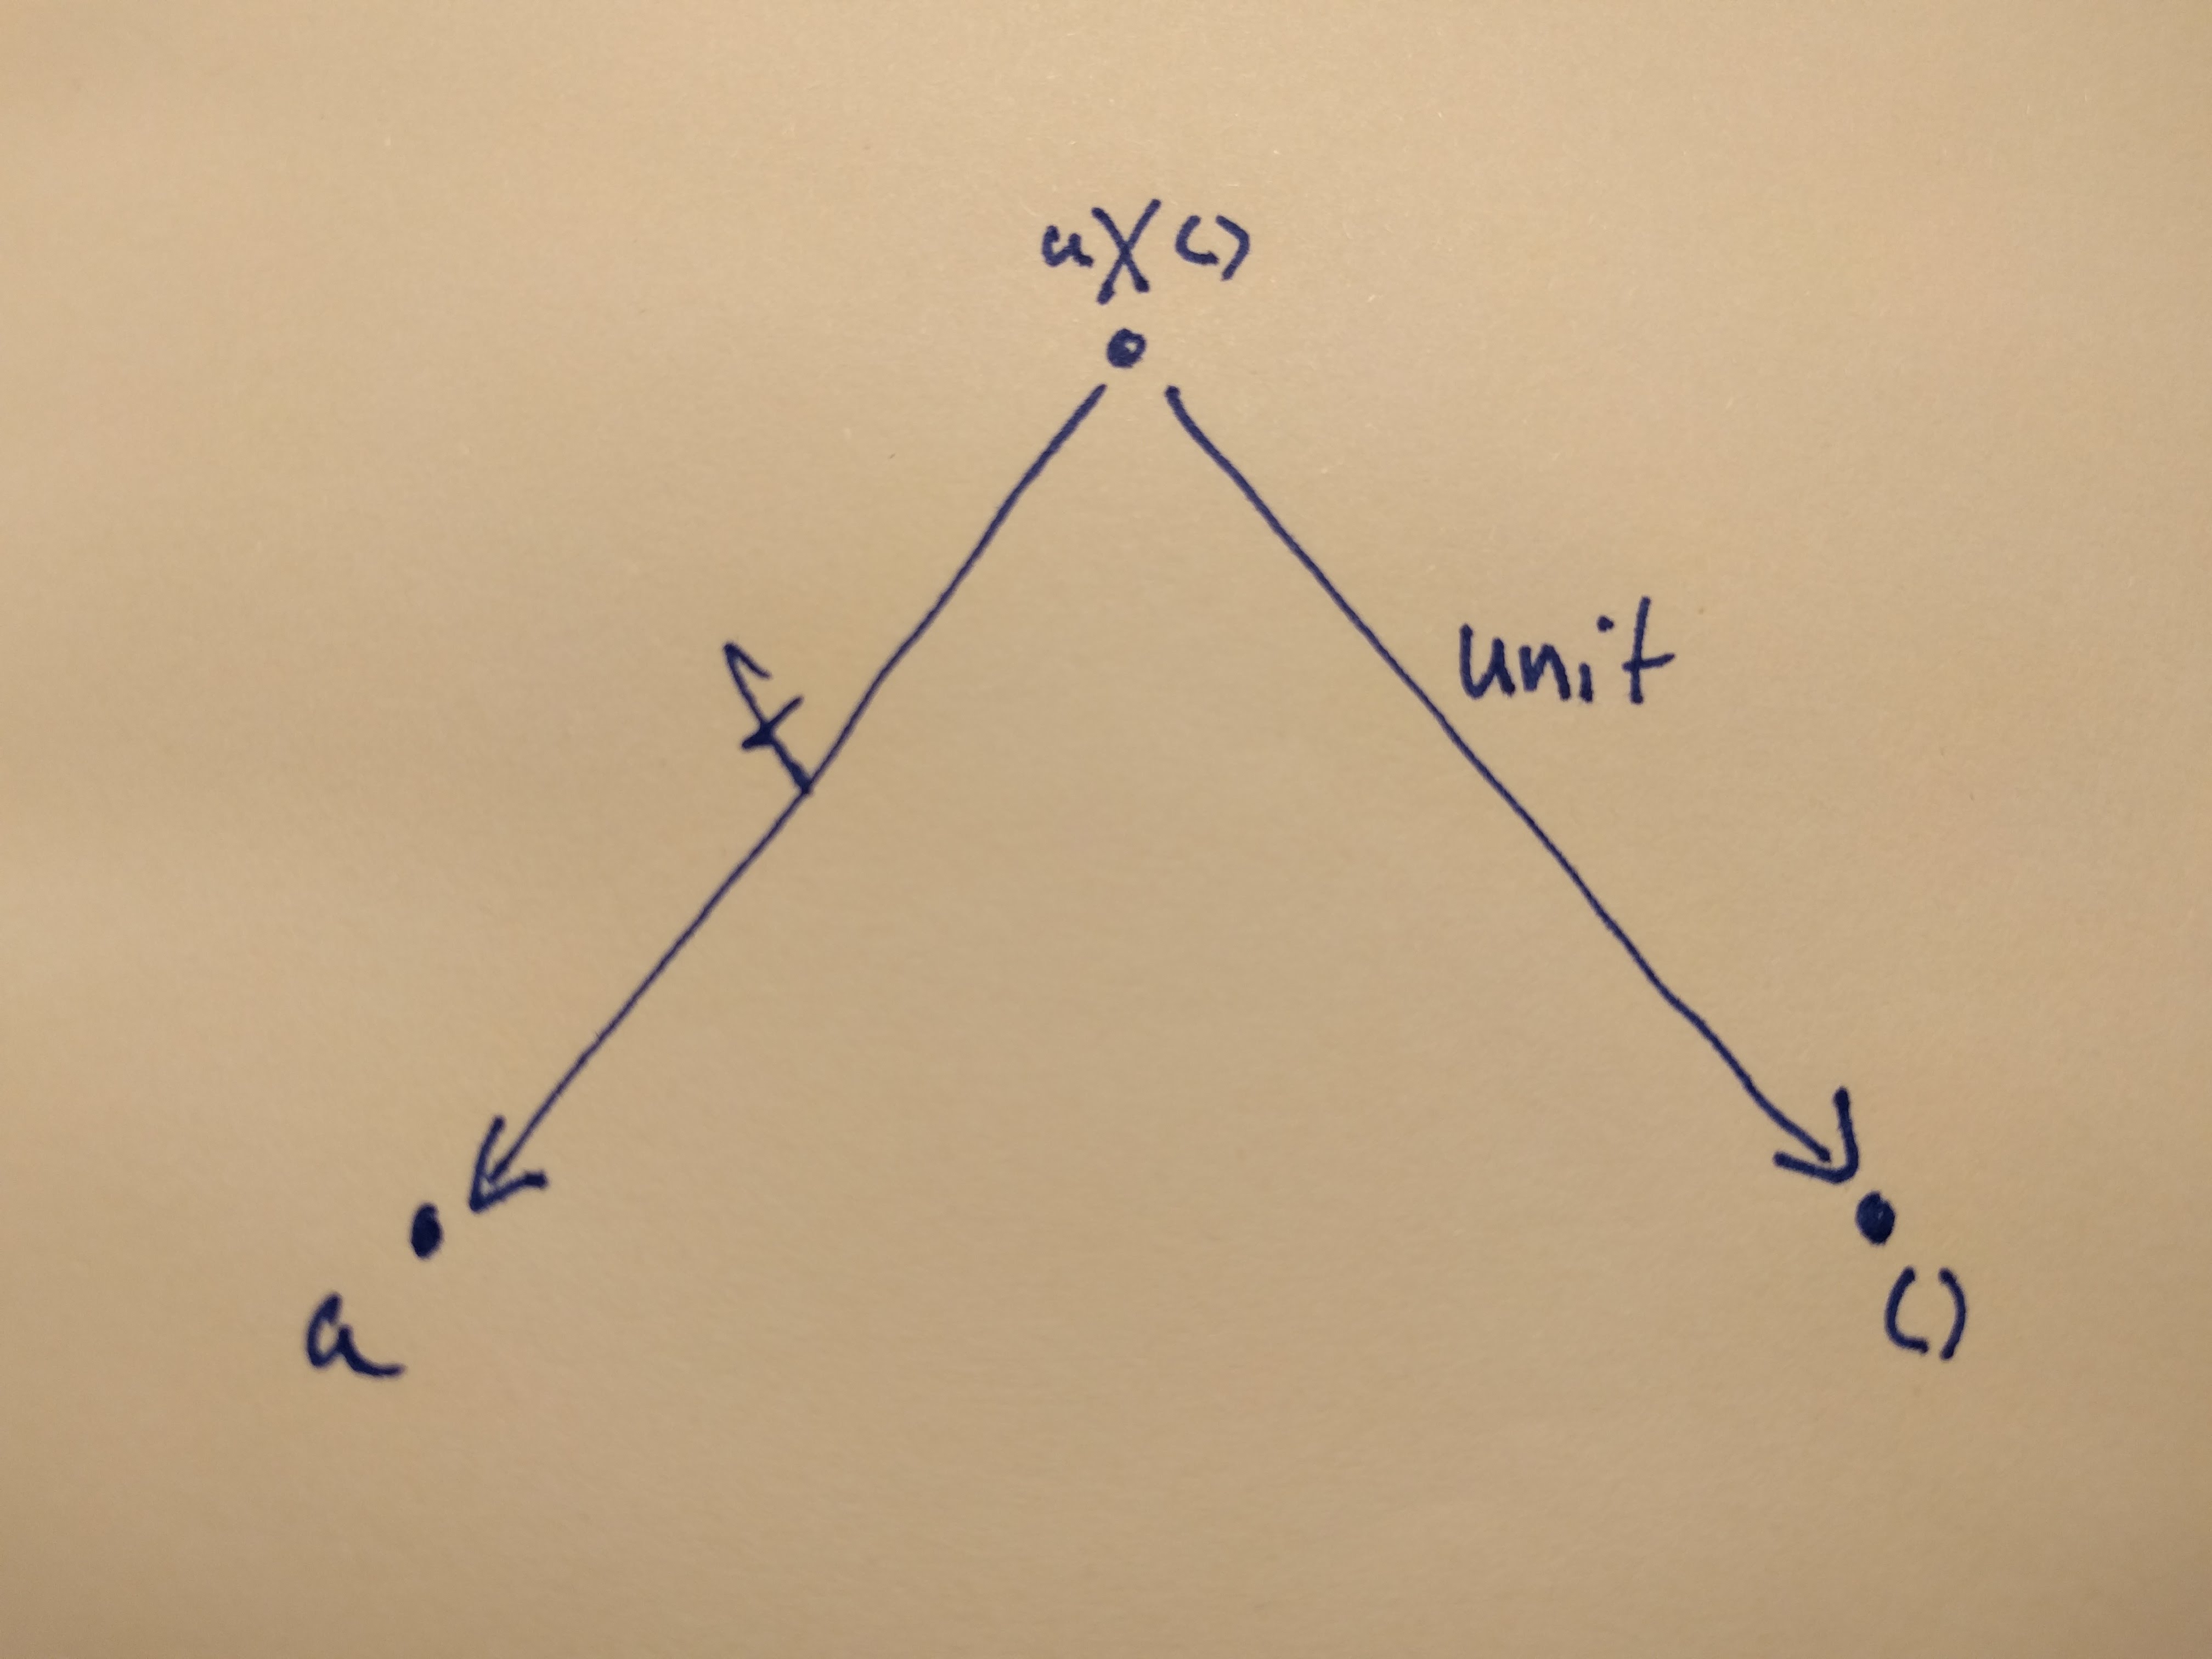 a×()
f
unit
a
()